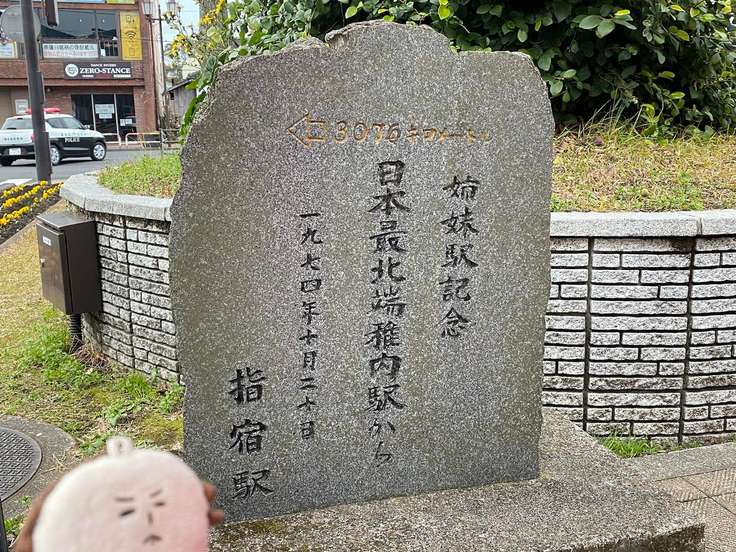 3076キロメートル
姉妹駅記念
日本最北端稚内駅から
一九七四年十月二十日
指宿駅
ZERO-STANCE
POLICE